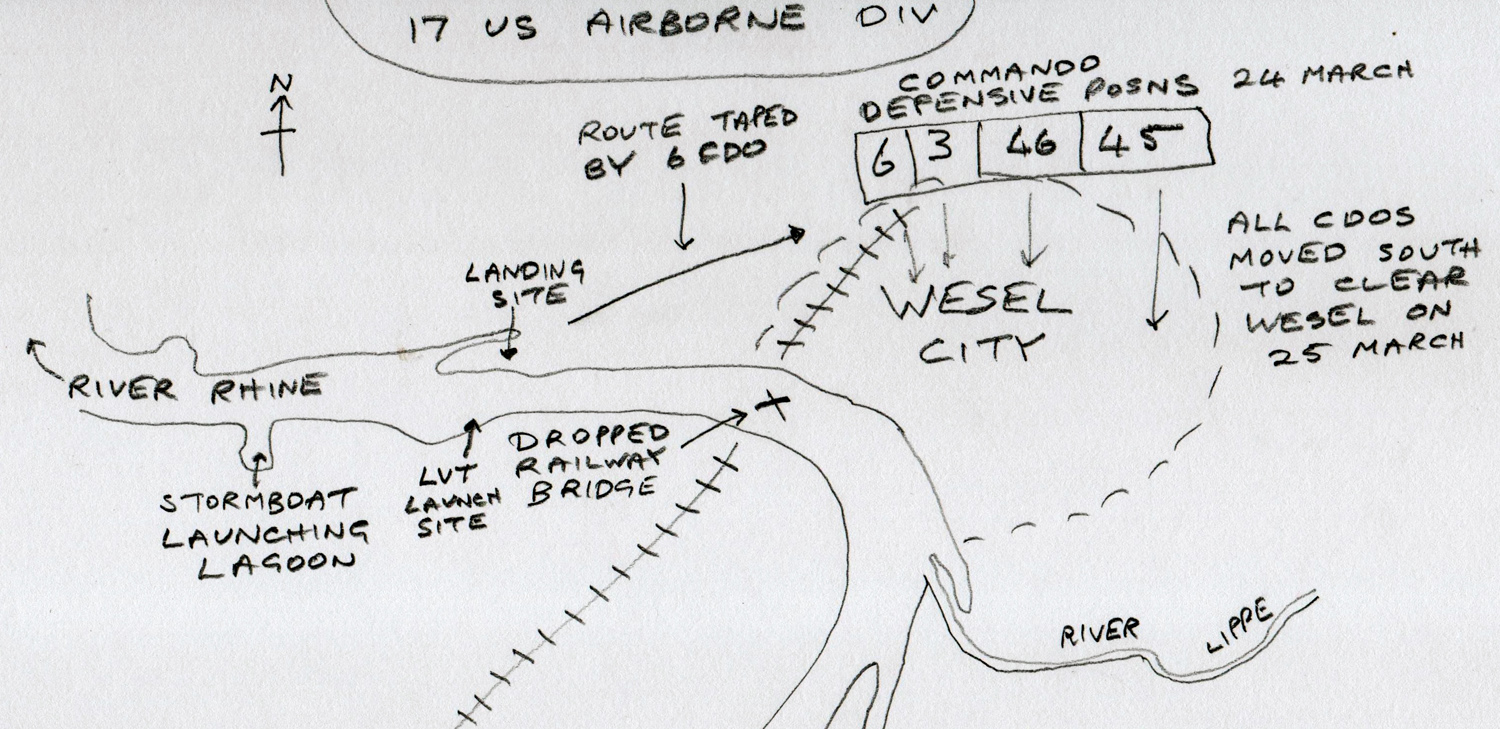 17 US AIRBORNE DIV
N
COMMANDO
DEFENSIVE POSNS 24 MARCH
6 3 46 45
ROUTE TAPED
BY 6 CDO
ALL CDOS
MOVED SOUTH
TO CLEAR
WESEL ON
25 MARCH
LANDING
SITE
WESEL
CITY
RIVER RHINE
DROPPED
RAILWAY
BRIDGE
LVT
LAUNCH
SITE
STORMBOAT
LAUNCHING
LAGOON
RIVER LIPPE